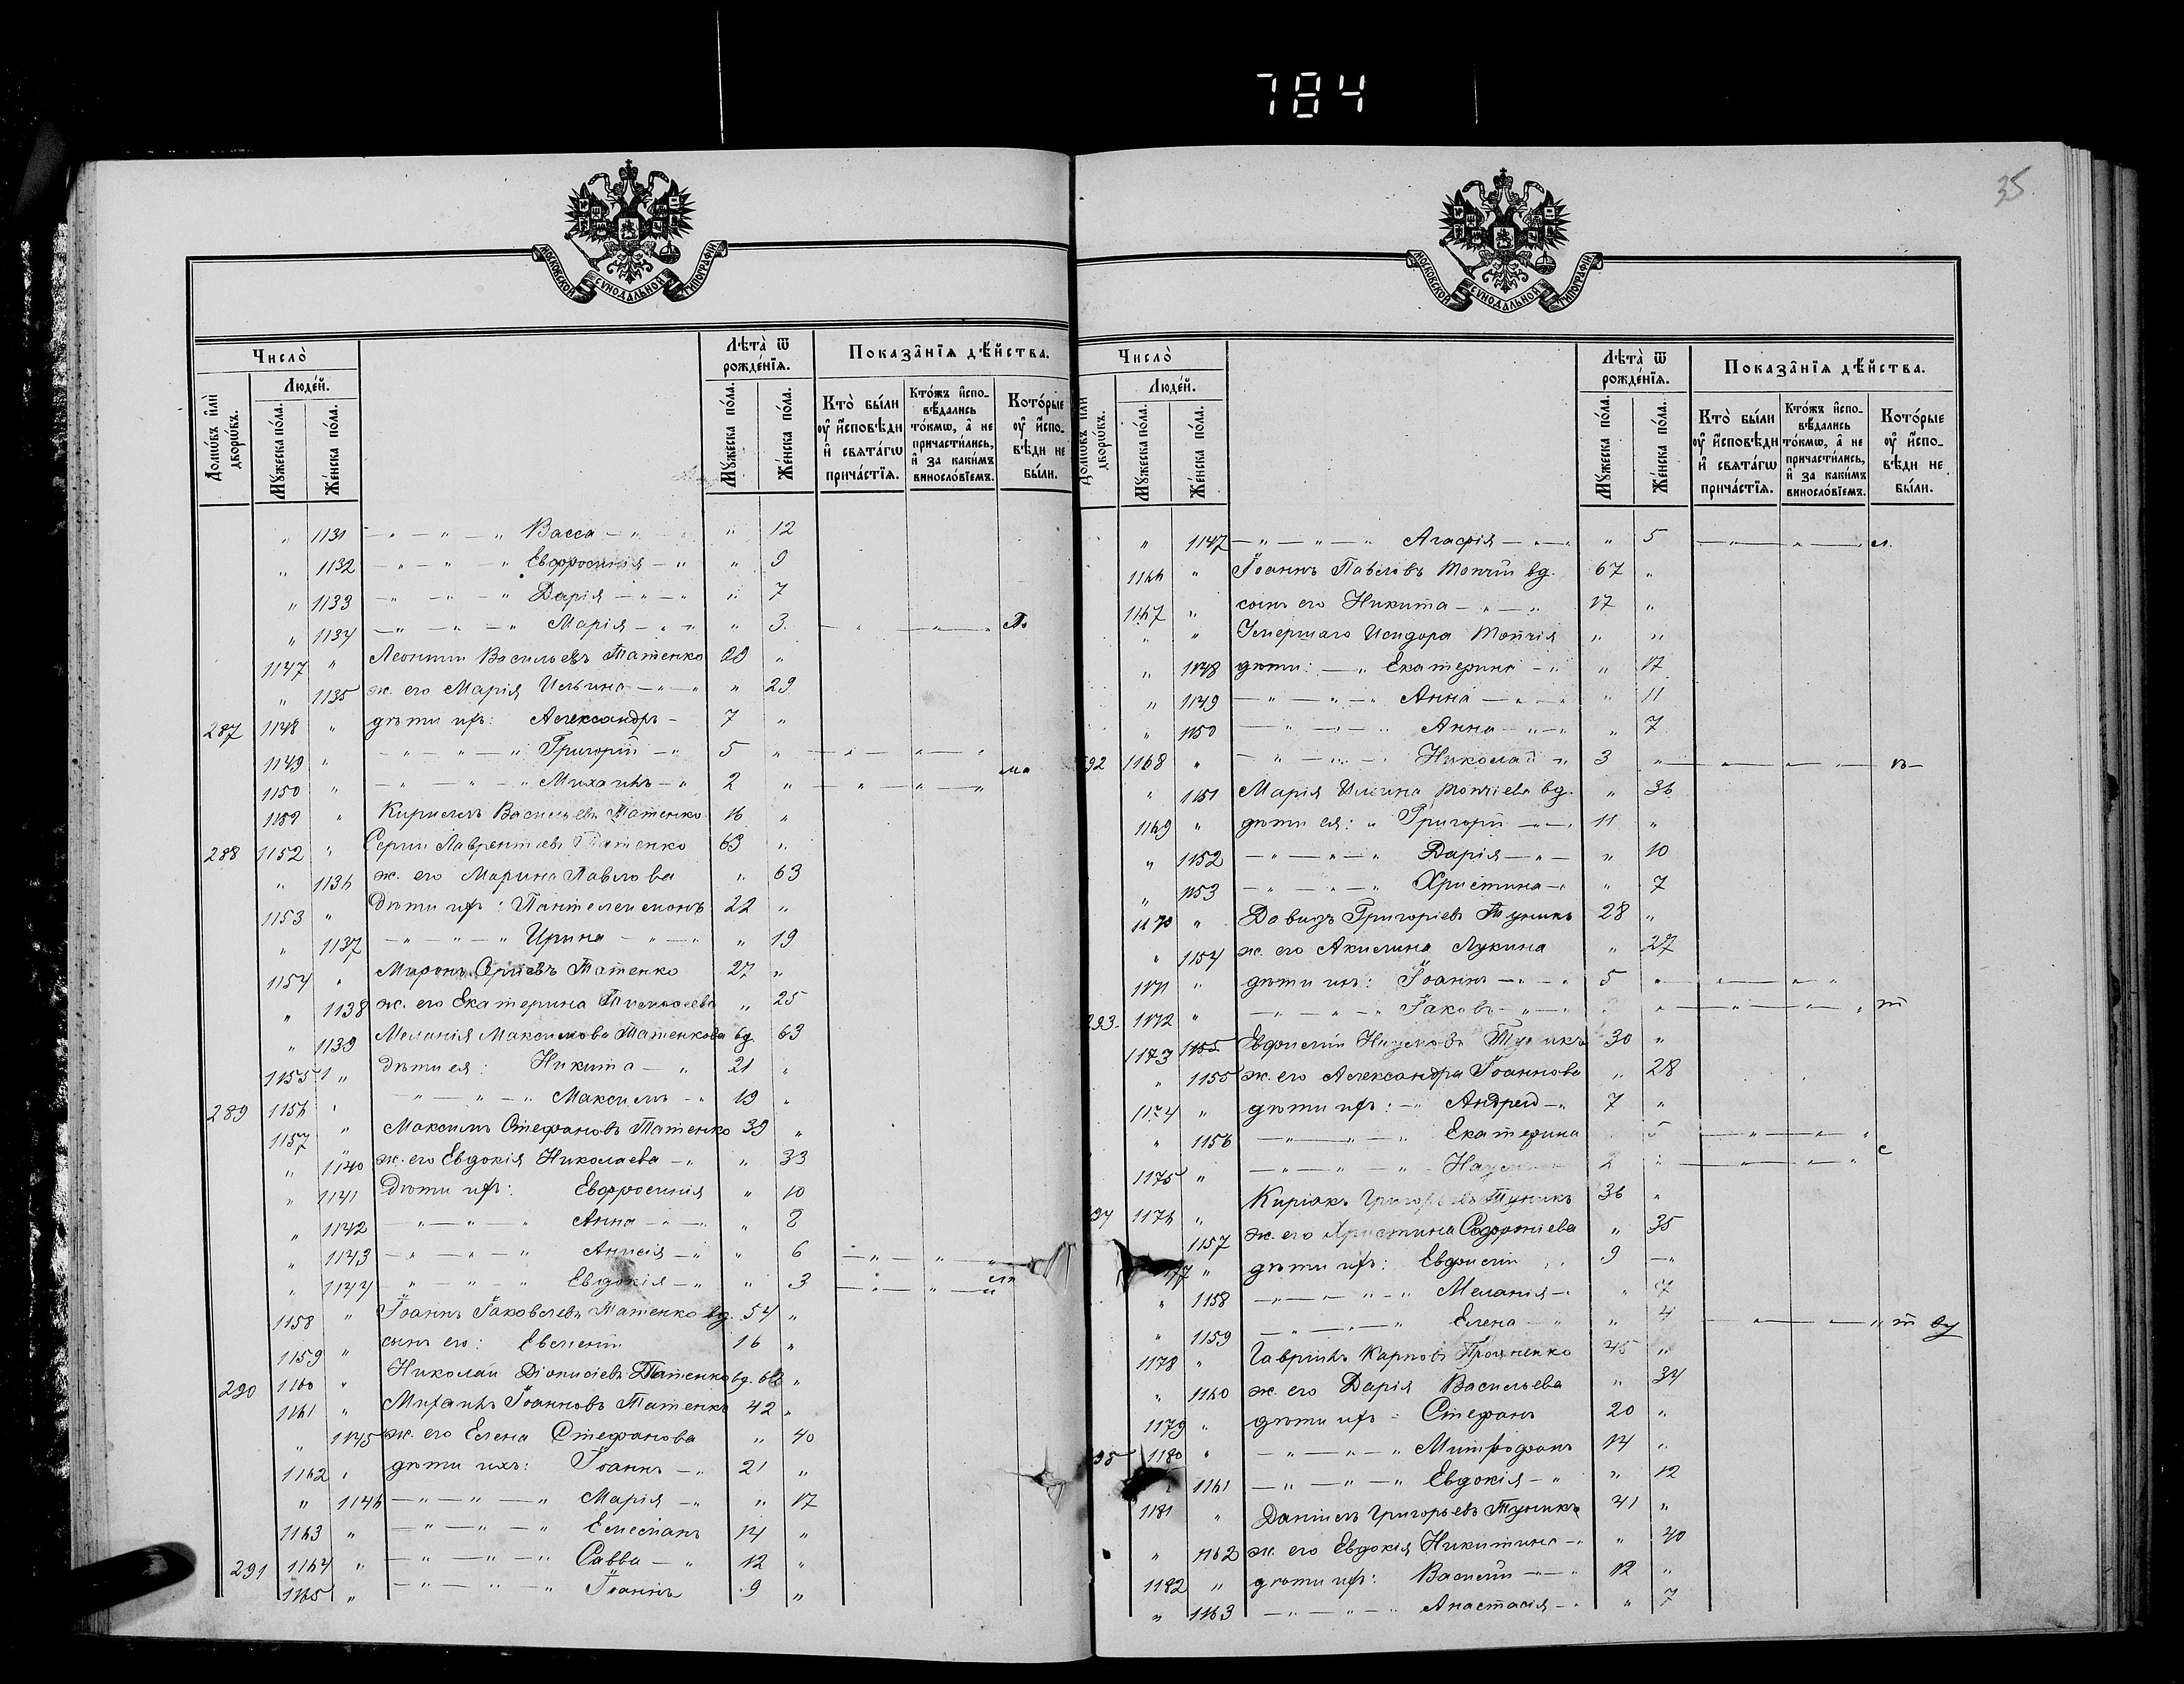 784
МОСКОВСКОЙ СУНОДАЛЬНОЙ ТИПОГРАФІИ
Число̀
Лѣта̀ ѿ рожде́нїѧ.
Показа̑нїѧ дѣ́йства.
Людей.
Домѡ́въ и҆лѝ дворѡ́въ.
Мꙋ́жеска по́ла.
Же́нска по́ла.
Мꙋ́жеска по́ла.
Же́нска по́ла.
Кто̀ бы́ли ᲂу҆ и҆́сповѣди и҆ свѧта́гѡ прича́стїѧ.
Кто́жъ и҆спо-вѣ́дались то́кмѡ, а҆ не причасти́лись, и҆ за каки́мъ винослόвїемъ.
Кото́рые ᲂу҆ и҆́спо-вѣди не бы́ли.
„ 1131 — „ — „ — „ Васса — „ — „ 12
„ 1132 — „ — „ — „ Евфросинія — „ „ 9
„ 1133 — „ — „ — „ Дарія — „ — „ „ 7
„ 1134 — „ — „ — „ Марія — „ — „ „ 3
1147 „ Леонтий Васильевъ Татенко 29 „
„ 1135 ж. его Марія Ильина — „ — „ „ 29
287 1148 „ дѣти ихъ: Александръ — 7 „
1149 „ — „ — „ — „ Григорій — „ 5 „
1150 „ — „ — „ — „ Михаилъ — „ 2 „
1151 „ Кириллъ Васильевъ Татенко 16 „
288 1152 „ Сергій Лаврентіевъ Татенко 63 „
„ 1136 ж. его Марина Павлова „ 63
1153 „ Дѣти ихъ: Пантелеимонъ 22 „
„ 1137 — „ — „ — „ Ирина — „ — „ „ 19
1154 „ Миронъ Сергіевъ Татенко 27 „
„ 1138 ж. его Екатерина „ 25
„ 1139 Меланія Максимова Татенкова вд. 63
1155 „ Дѣти ея: Никита — „ 21 „
289 1156 „ — „ — „ — „ Максимъ — „ 19 „
1157 „ Максимъ Стефановъ Татенко 39 „
„ 1140 ж. его Евдокія Николаева — „ „ 33
„ 1141 Дѣти ихъ: Евфросинія „ 10
„ 1142 — „ — „ — „ Анна — „ — „ „ 8
„ 1143 — „ — „ — „ Анисія — „ „ 6
„ 1144 — „ — „ — „ Евдокія — „ „ 3
1158 „ Іоаннъ Іаковлевъ Татенко вд. 54 „
1159 „ сынъ его: Евсигній 16 „
290 1160 „ Николай Діонисіевъ Татенко вд. „
1161 „ Михаилъ Іоанновъ Татенко 42 „
„ 1145 ж. его Елена Стефанова „ 40
1162 „ дѣти ихъ: Іоаннъ — „ 21 „
„ 1146 — „ — „ — „ Марія — „ „ 17
1163 „ — „ — „ — „ Емеліанъ 14 „
291 1164 „ — „ — „ — „ Савва — „ 12 „
1165 „ — „ — „ — „ Іоаннъ 9 „
35.
МОСКОВСКОЙ СУНОДАЛЬНОЙ ТИПОГРАФІИ
Число̀
Лѣта̀ ѿ рожде́нїѧ.
Показа̑нїѧ дѣ́йства.
Людей.
Домѡ́въ и҆лѝ дворѡ́въ.
Мꙋ́жеска по́ла.
Же́нска по́ла.
Мꙋ́жеска по́ла.
Же́нска по́ла.
Кто̀ бы́ли ᲂу҆ и҆́сповѣди и҆ свѧта́гѡ прича́стїѧ.
Кто́жъ и҆спо-вѣ́дались то́кмѡ, а҆ не причасти́лись, и҆ за каки́мъ винослόвїемъ.
Кото́рые ᲂу҆ и҆́спо-вѣди не бы́ли.
„ 1147 — „ — „ — „ Агафія — „ — „ „ 5 — „ — „ — м.
1166 „ Іоаннъ Павловъ Топчій вд. 67 „
1167 „ сынъ его Никита — „ — „ 17 „
„ „ Умершаго Исидора Топчія „ „
„ 1148 дѣти: — „ Екатерина — „ „ 17
„ 1149 — „ — „ — „ Анна — „ — „ „ 11
„ 1150 — „ — „ — „ Анна — „ — „ „ 7
292 1168 „ — „ — „ — „ Николай „ 3 „
„ 1151 Марія Ильина Топчіева вд. „ 36
1169 „ дѣти ея: „ Григорій — „ 11 „
„ 1152 — „ — „ — „ Дарія — „ — „ 10
„ 1153 — „ — „ — „ Христина — „ „ 7
1170 „ Давидъ Григоріевъ Туникъ 28 „
„ 1154 ж. его Акилина Лукина „ 27
1171 „ дѣти ихъ: Іоаннъ — „ — „ 5 „
293. 1172 „ — „ — „ — „ Іаковъ — „ — „
1173 1155 Евфимій Наумовъ Туникъ 30 „
„ 1155 ж. его Александра Іоаннова „ 28
1174 „ дѣти ихъ: — „ Андрей — „ 7 „
„ 1156 — „ — „ — „ Екатерина 5
1175 „ — „ — „ — „ 2 „
294 1176 „ Киріакъ Григорьевъ Туникъ 36 „
1157 ж. его Христина Софоніева „ 35
1177 „ дѣти ихъ: Евфимій „ 9 — „
„ 1158 — „ — „ — „ Меланія — „ „ 7
„ 1159 — „ — „ — „ Елена — „ „ 4
1178 „ Гавріилъ Карповъ 45 „
„ 1160 ж. его Дарія Васильева „ 34
1179 „ дѣти ихъ: Стефанъ 20 „
295 1180 „ — „ — „ — „ Митрофанъ 14 „
„ 1161 — „ — „ — „ Евдокія — „ „ 12
1181 „ Даніилъ Григорьевъ Туникъ 41 „
„ 1162 ж. его Евдокія Никитина — „ „ 40
1182 „ дѣти ихъ: Василій — „ — „ 12 „
„ 1163 — „ — „ — „ Анастасія — „ „ 7